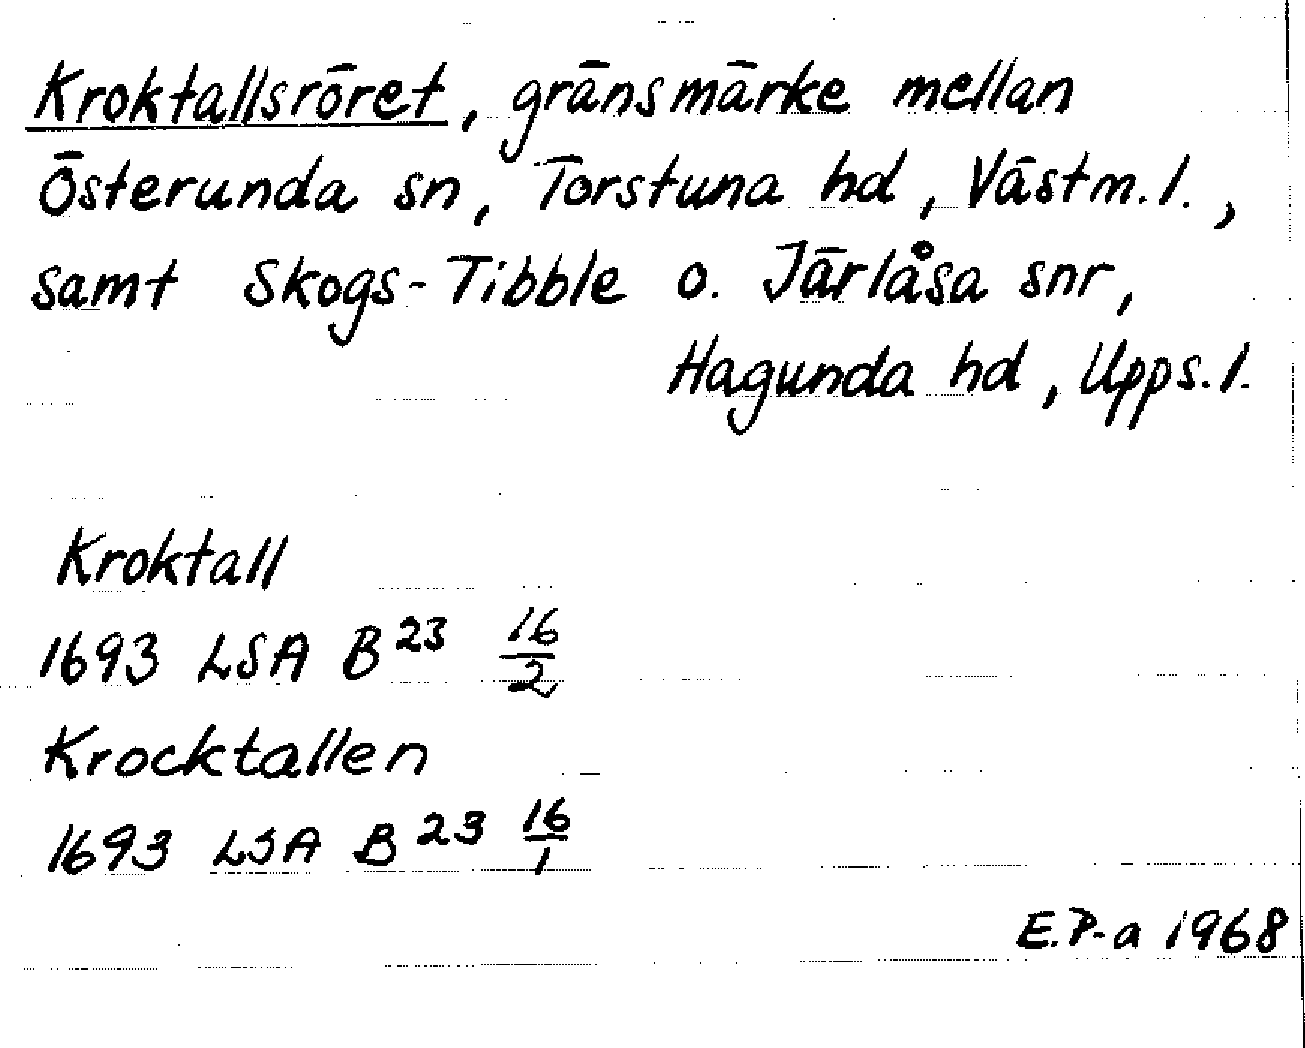 Kroktallsröret, gränsmärke mellan
Österunda sn, Torstuna hd, Västm.l.,
samt Skogs-Tibble o. Järlåsa snr,
Hagunda hd, Upps.l.
Kroktall
1693 LSA B²³ 16/2
Krocktallen
1693 LSA B²³ 16/1
E.P-a 1968